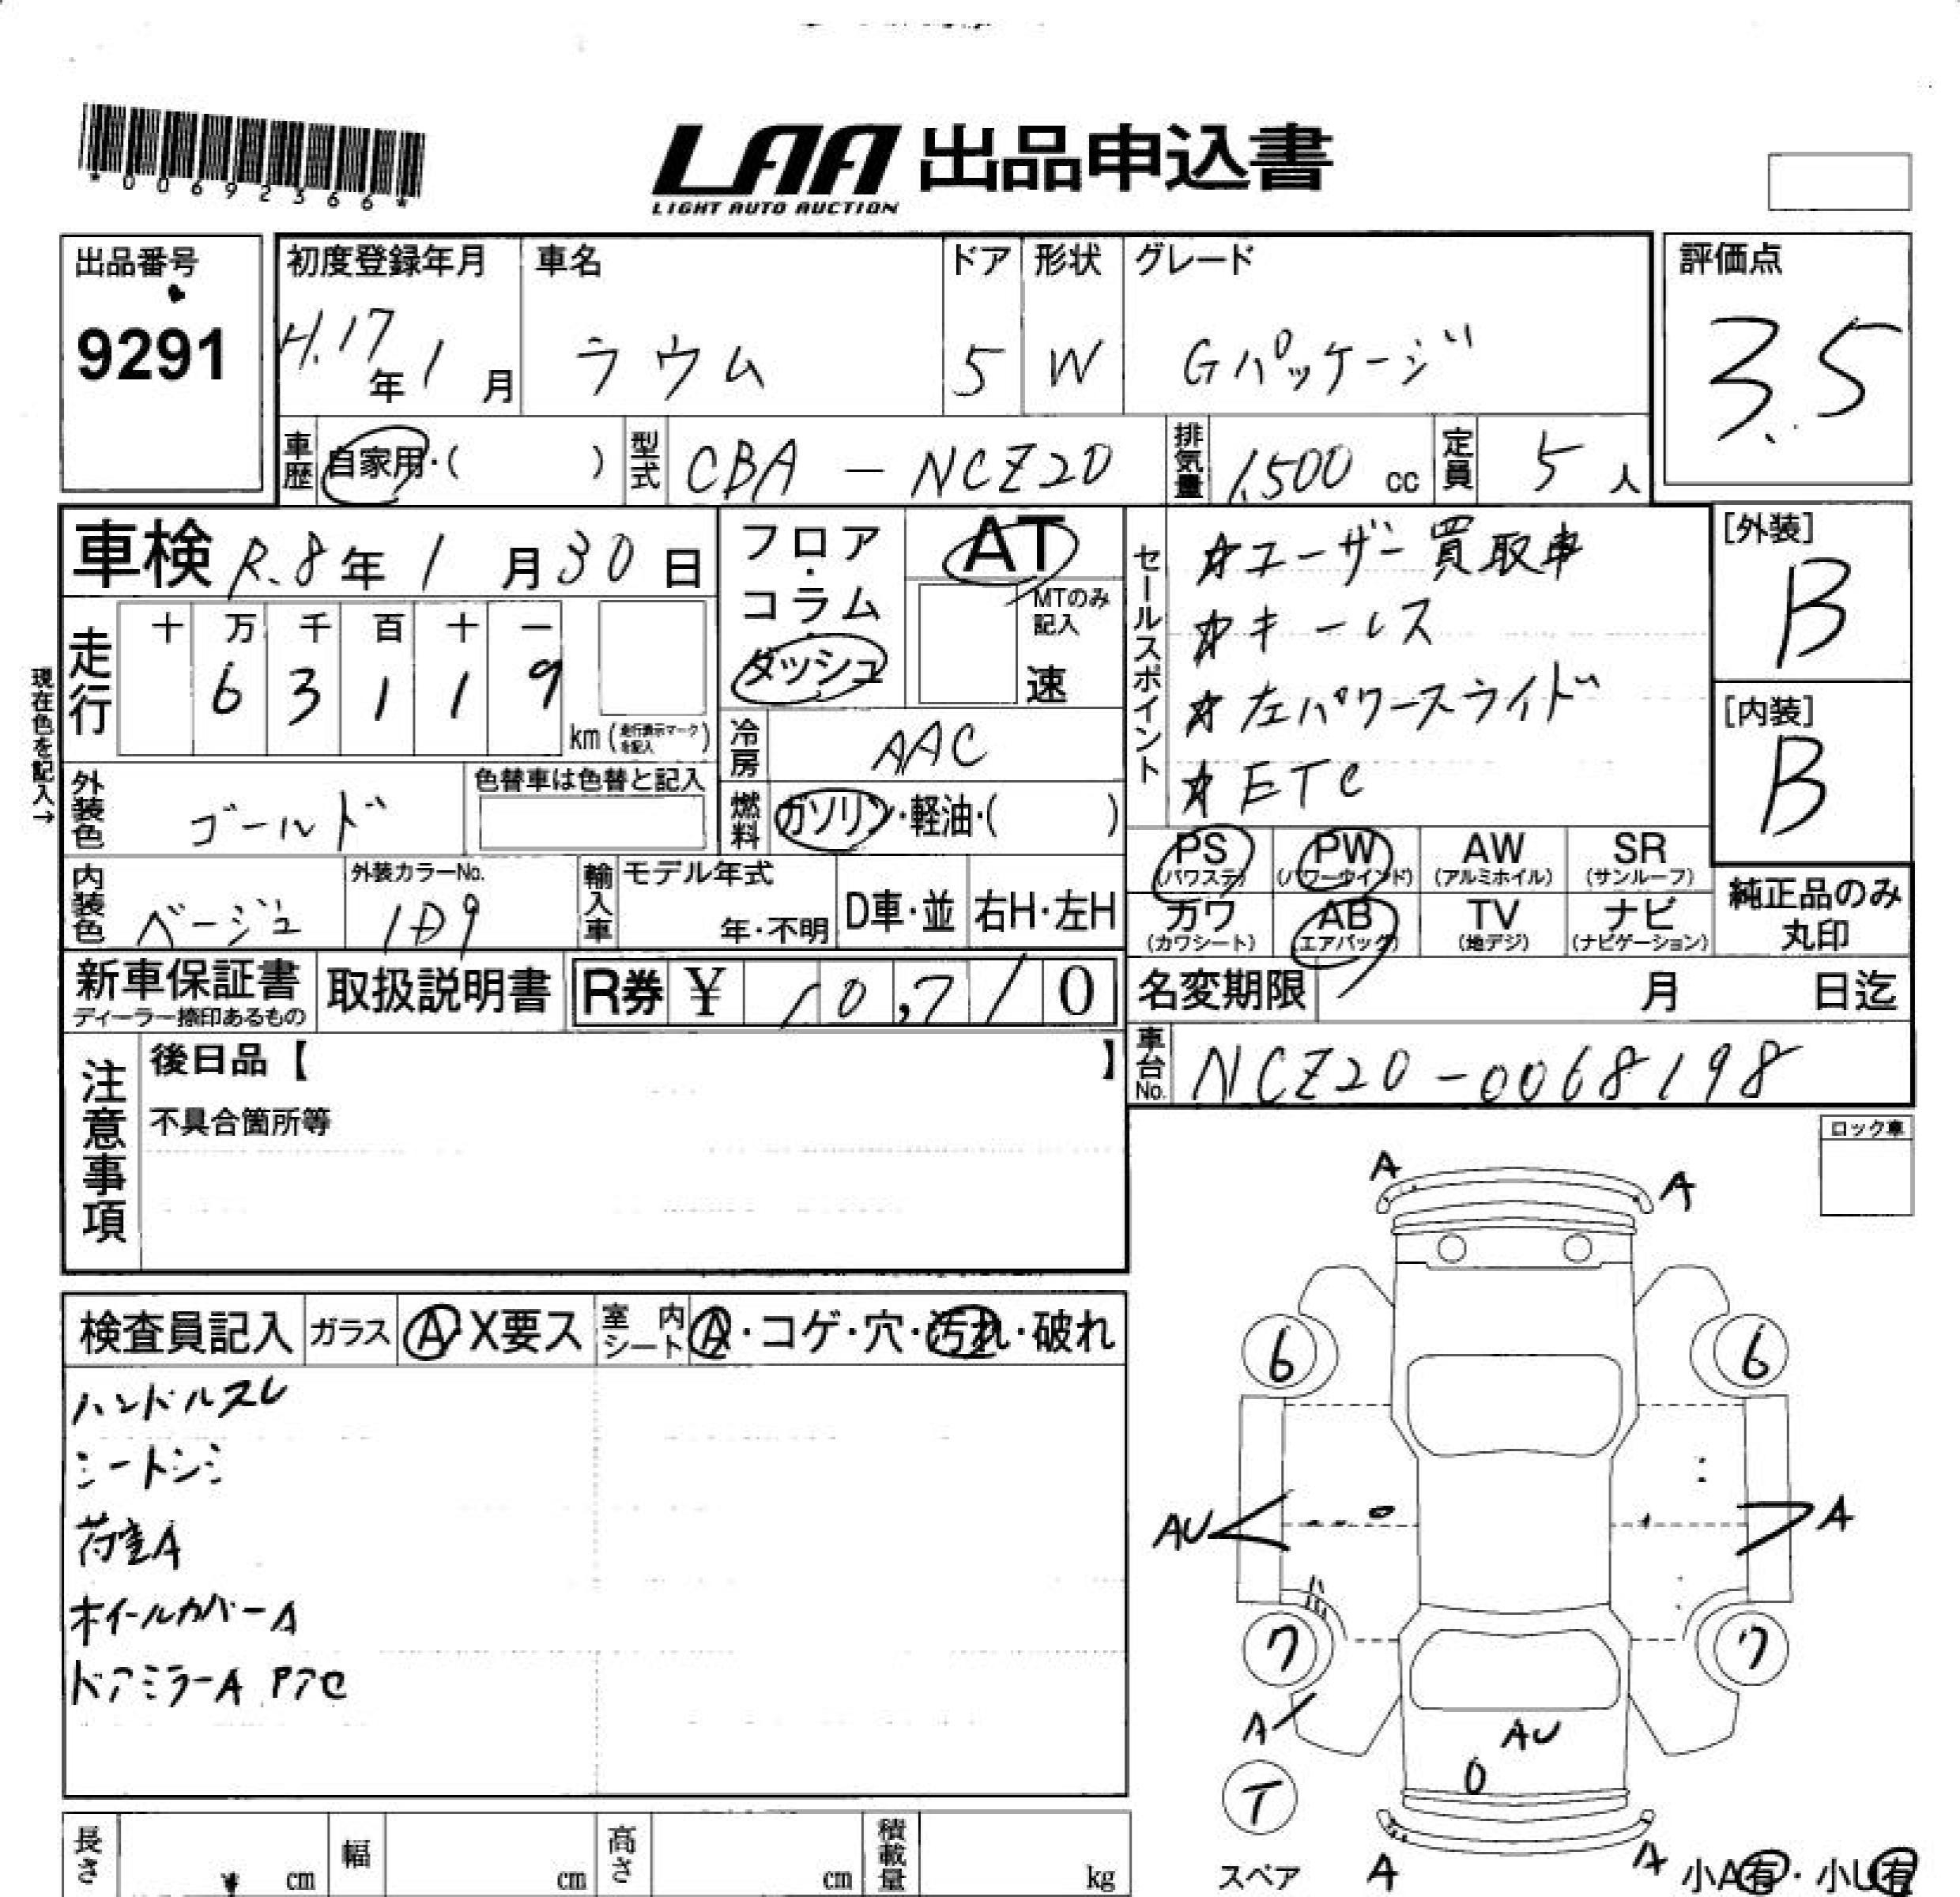 *00692366*
LAA 出品申込書
LIGHT AUTO AUCTION
出品番号
9291
初度登録年月
H.17年1月
車名
ラウム
ドア
5
形状
W
グレード
Gパッケージ
評価点
3.5
車歴
自家用・( )
型式
CBA - NCZ20
排気量
1,500 cc
定員
5人
車検 R.8年1月30日
現在色を記入→
走行
十 万 千 百 十 一
6 3 1 1 9
km (走行表示マークを記入)
フロア・コラム・ダッシュ
AT
MTのみ記入
速
冷房
AAC
燃料
ガソリン・軽油・( )
外装色
ゴールド
色替車は色替と記入
内装色
ベージュ
外装カラーNo.
1D9
輸入車
モデル年式
年・不明
D車・並
右H・左H
セールスポイント
☆ユーザー買取車
☆キーレス
☆左パワースライド
☆ETC
[外装]
B
[内装]
B
PS (パワステ)
PW (パワーウインド)
AW (アルミホイル)
SR (サンルーフ)
カワ (カワシート)
AB (エアバッグ)
TV (地デジ)
ナビ (ナビゲーション)
純正品のみ丸印
新車保証書
ディーラー捺印あるもの
取扱説明書
R券 ¥ 10,710
名変期限 月 日迄
車台No.
NCZ20-0068198
注意事項
後日品【 】
不具合箇所等
ロック車
検査員記入
ガラス
A・X要ス
室内シート
A・コゲ・穴・汚れ・破れ
ハンドルスレ
シートシミ
荷室A
ホイールカバーA
ドアミラーA Pアセ
A
A
6
6
AU
A
ワ
ワ
A
AU
U
T
スペア
A
A
小A有・小U有
長さ cm
幅 cm
高さ cm
積載量 kg